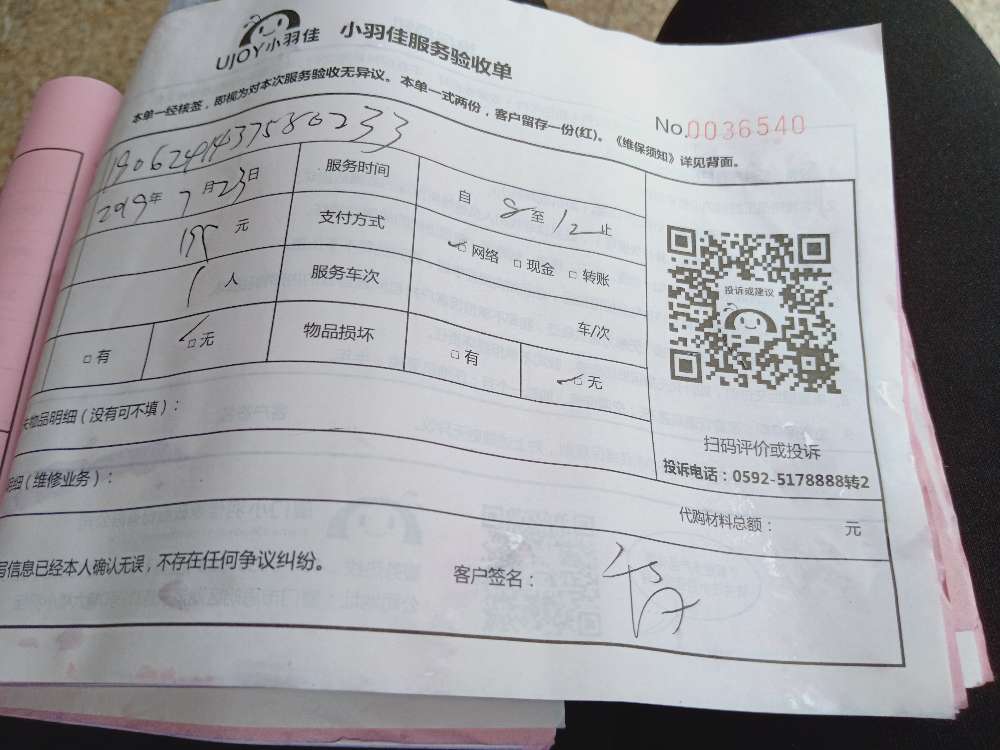 UJOY小羽佳 小羽佳服务验收单
本单一经核签，即视为对本次服务验收无异议。本单一式两份，客户留存一份(红)。《维保须知》详见背面。
No.0036540
服务时间 自 8 至 12 止
年 7月23日
元 支付方式 ☑网络 □现金 □转账
1 人 服务车次 车/次
□有 ☑无 物品损坏 □有 ☑无
投诉或建议
扫码评价或投诉
投诉电话：0592-5178888转2
物品明细（没有可不填）：
明细（维修业务）：
代购材料总额： 元
写信息已经本人确认无误，不存在任何争议纠纷。
客户签名：